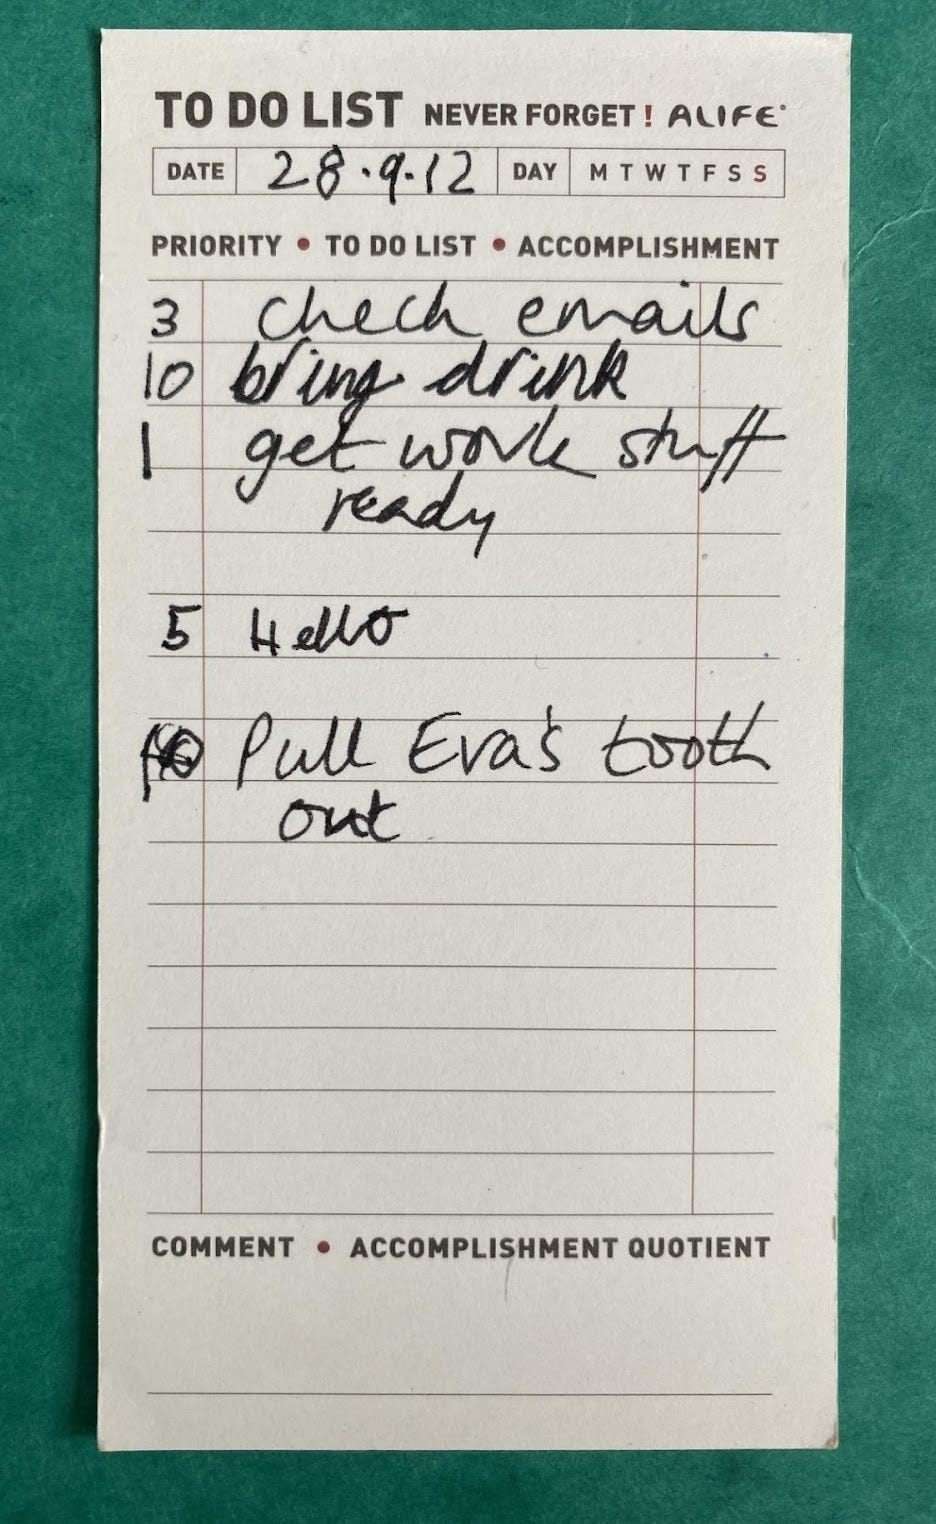 TO DO LIST NEVER FORGET! ALIFE
DATE 28.9.12 DAY M T W T F S S
PRIORITY • TO DO LIST • ACCOMPLISHMENT
3 check emails
10 bring drink
1 get work stuff
ready
5 Hello
Pull Eva's tooth
out
COMMENT • ACCOMPLISHMENT QUOTIENT